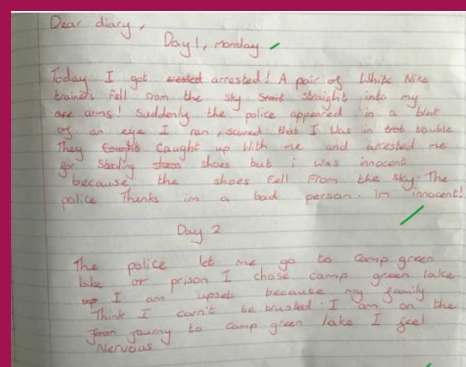 Dear diary,
Day 1, monday
Today I got arrested arrested! A pair of White Nike
trainers fell from the sky straight into my
are arms! Suddenly the police appeared in a blink
of an eye I ran, scared that I was in trouble
They caught up with me and arrested me
for stealing shoes but i was innocent
because the shoes fell from the sky. The
police Thinks im a bad person. im innocent!
Day 2
The police let me go to camp green
lake or prison I chose camp green lake
I am upset because my family
Think I carn't be trusted. I am on the
journy to camp green lake I feel
Nervous